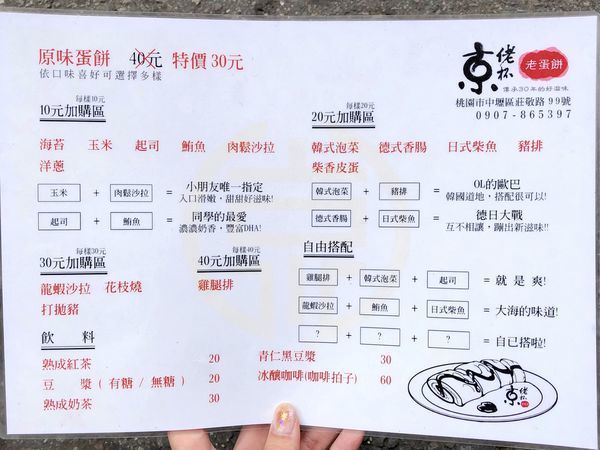 原味蛋餅 40元 特價30元
依口味喜好可選擇多樣
京 佬杯 老蛋餅
傳承30年的好滋味
桃園市中壢區莊敬路99號
0907-865397
每樣10元
10元加購區
海苔 玉米 起司 鮪魚 肉鬆沙拉
洋蔥
玉米 + 肉鬆沙拉 = 小朋友唯一指定
入口滑嫩，甜甜好滋味!
起司 + 鮪魚 = 同學的最愛
濃濃奶香，豐富DHA!
每樣20元
20元加購區
韓式泡菜 德式香腸 日式柴魚 豬排
柴香皮蛋
韓式泡菜 + 豬排 = OL的歐巴
韓國道地，搭配很可以!
德式香腸 + 日式柴魚 = 德日大戰
互不相讓，蹦出新滋味!!
每樣30元
30元加購區
龍蝦沙拉 花枝燒
打拋豬
每樣40元
40元加購區
雞腿排
自由搭配
雞腿排 + 韓式泡菜 + 起司 = 就是爽!
龍蝦沙拉 + 鮪魚 + 日式柴魚 = 大海的味道!
? + ? + ? = 自已搭啦!
飲料
熟成紅茶 20
豆漿(有糖/無糖) 20
熟成奶茶 30
青仁黑豆漿 30
冰釀咖啡(咖啡拍子) 60
京 佬杯